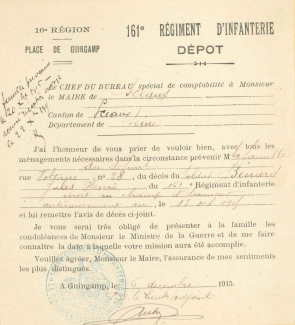 10e RÉGION
PLACE DE GUINGAMP
161e RÉGIMENT D'INFANTERIE
DÉPOT
LE CHEF DU BUREAU spécial de comptabilité à Monsieur
le MAIRE de Sceaux
Canton de Sceaux
Département de Seine
J'ai l'honneur de vous prier de vouloir bien, avec tous les
ménagements nécessaires dans la circonstance prévenir M la famille
du défunt
No 28, du décès du soldat
Jules Henri du 161e Régiment d'Infanterie
survenu au champ d'honneur
antérieurement au 12 oct 1915
et lui remettre l'avis de décès ci-joint.
Je vous serai très obligé de présenter à la famille les
condoléances de Monsieur le Ministre de la Guerre et de me faire
connaître la date à laquelle votre mission aura été accomplie.
Veuillez agréer, Monsieur le Maire, l'assurance de mes sentiments
les plus distingués.
A Guingamp, le 6 décembre 1915.